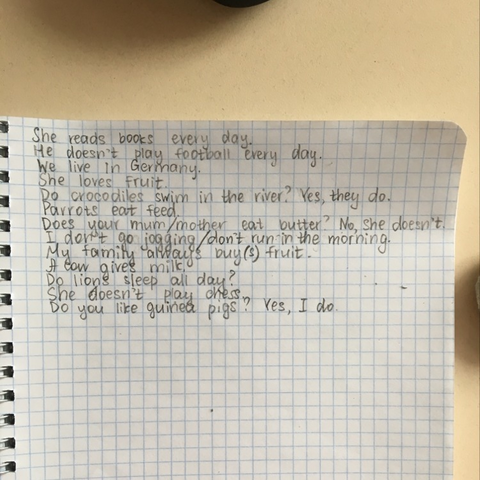 She reads books every day.
He doesn't play football every day.
We live in Germany.
She loves fruit.
Do crocodiles swim in the river? Yes, they do.
Parrots eat feed.
Does your mum/mother eat butter? No, she doesn't.
I don't go jogging/don't run in the morning.
My family always buy(s) fruit.
A cow gives milk.
Do lions sleep all day?
She doesn't play chess.
Do you like guinea pigs? Yes, I do.